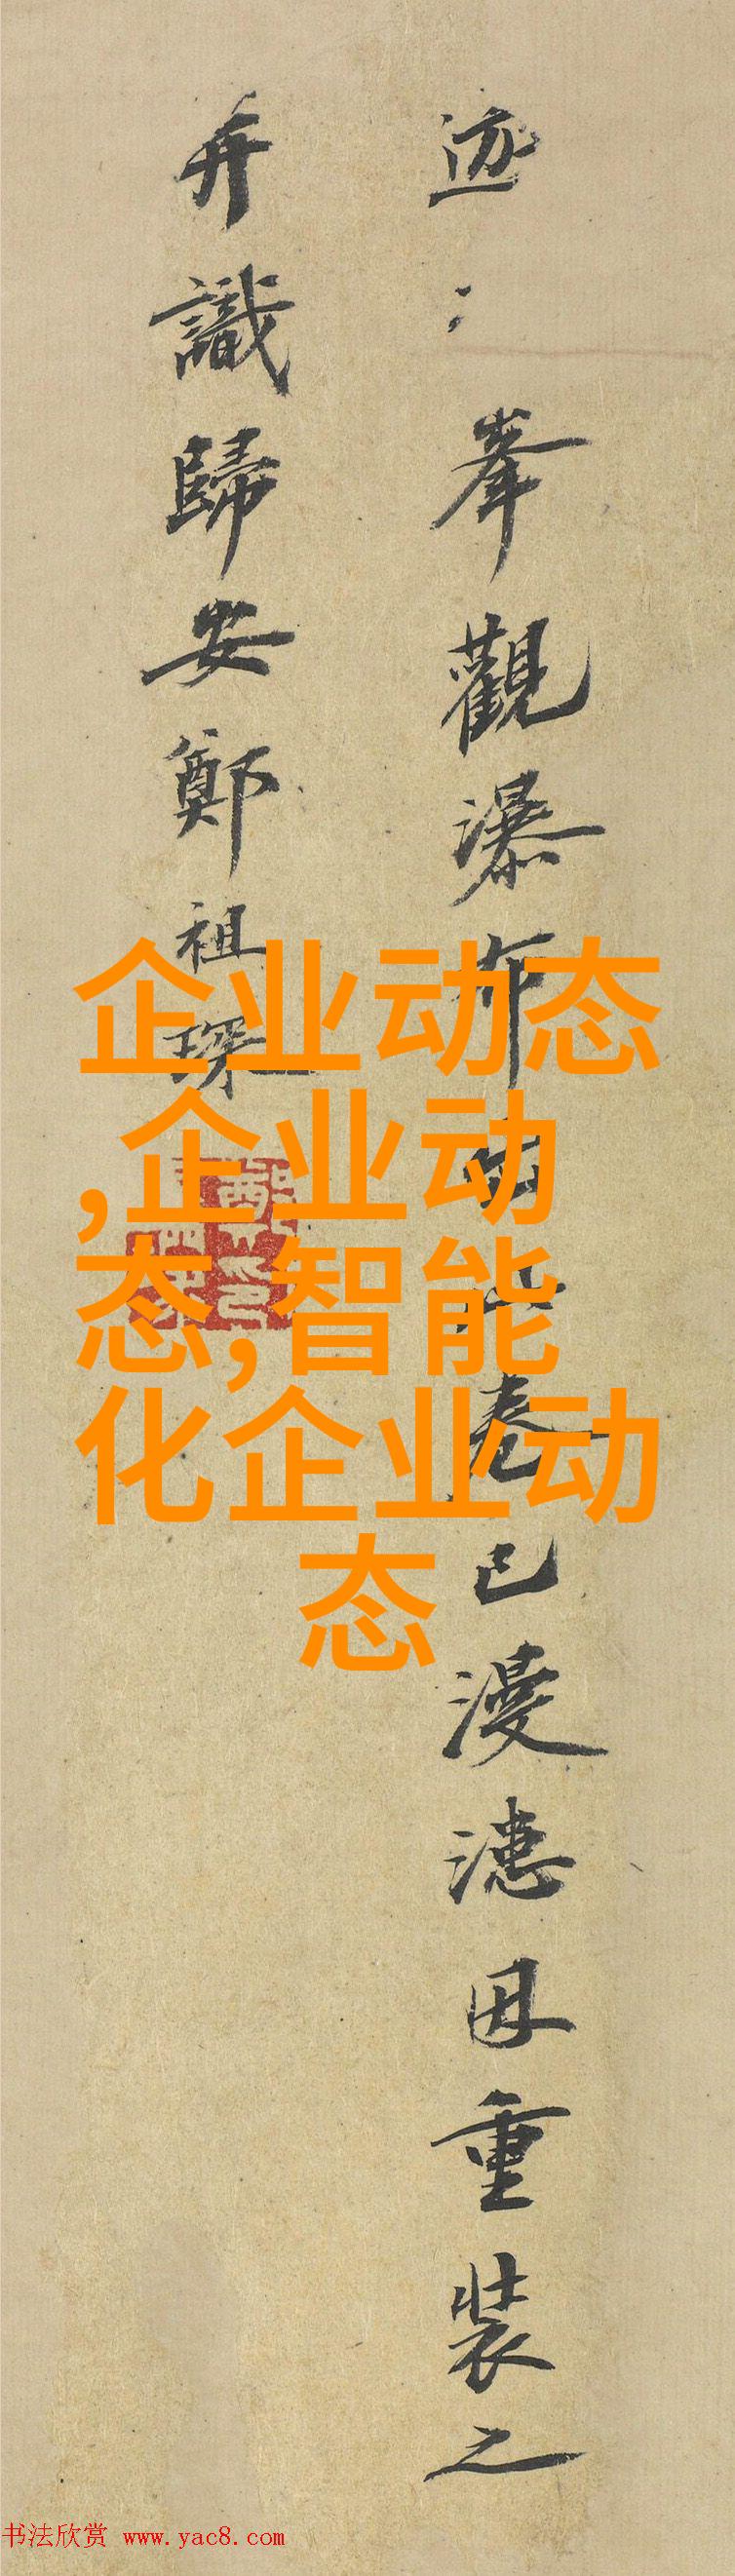 迹〻峯觀瀑布卷已漫漶因重裝之
并識歸安鄭祖琛
企业动态
,企业动
态,智能
化企业动
态
书法欣赏 www.yac8.com